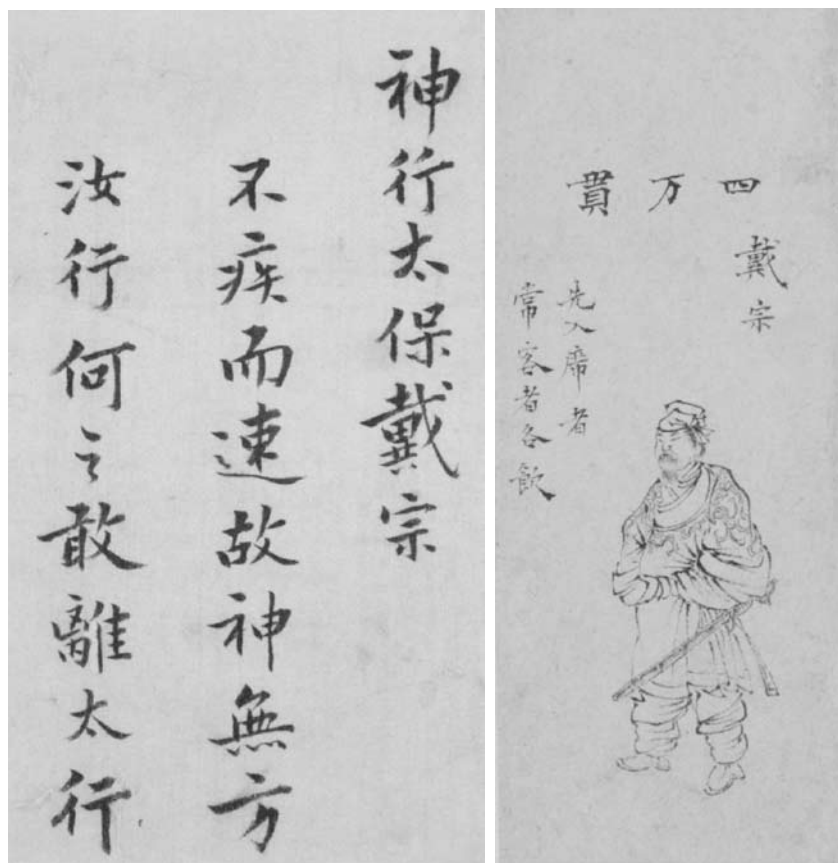 神行太保戴宗
不疾而速故神無方
汝行何之敢離太行
四万貫
戴宗
先入席者
常客者各飲